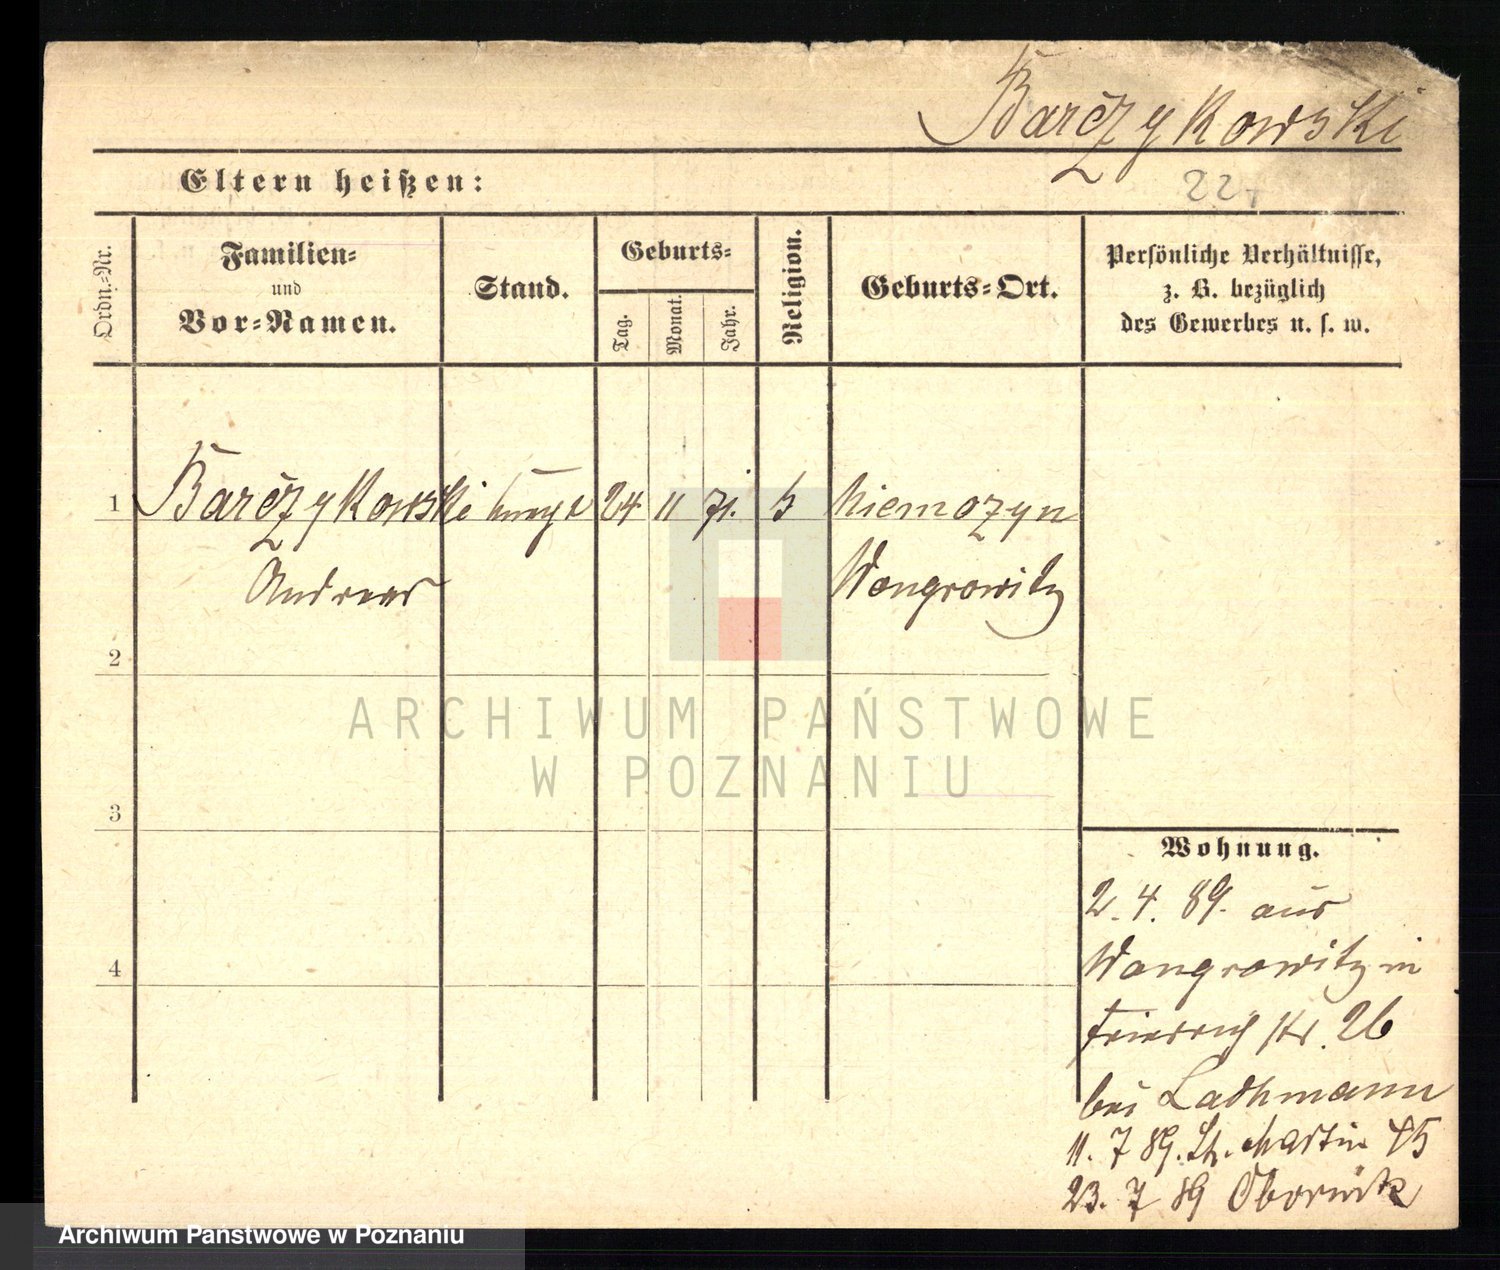 Barczykowski
Eltern heißen:
22
Ordn.-Nr.
Familien-
und
Vor-Namen.
Stand.
Geburts-
Tag.
Monat.
Jahr.
Religion.
Geburts-Ort.
Persönliche Verhältnisse,
z. B. bezüglich
des Gewerbes u. s. w.
1 Barczykowski 24 11 71. Niemczyn
Andreas Wongrowitz
2
3
4
Wohnung.
2. 4. 89. aus
Wongrowitz in
Friedrich str. 26
bei Lachmann
11. 7 89. St. Martin 45
23. 7 89 Obornik
ARCHIWUM PAŃSTWOWE
W POZNANIU
Archiwum Państwowe w Poznaniu